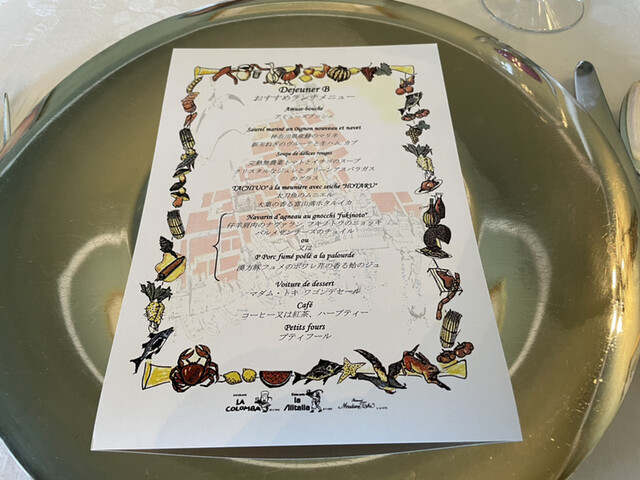 Dejeuner B
おすすめランチメニュー
Amuse-bouche
アミューズブッシュ
Saurel mariné au Oignon nouveau et navet
神奈川県産鯵のマリネ
新玉ねぎのヴルーテと生ハム カブ
Soupe de délices rouges
完熟無農薬トマトとイチゴのスープ
クリスタルなジュレとグリーンアスパラガス
のグラス
TACHIUO" à la meunière avec seiche "HOTARU"
太刀魚のムニエル
大葉の香る富山湾ホタルイカ
Navarin d'agneau au gnocchi "fukinoto"
仔羊肩肉のナヴァラン フキノトウのニョッキ
パルメザンチーズのチュイル
ou
又は
P Porc fumé poêlé a la palourde
漢方豚フュメのポワレ芹の香る蛤のジュ
Voiture de dessert
マダム・トキ ワゴンデセール
Café
コーヒー又は紅茶、ハーブティー
Petits fours
プティフール
LA COLOMBA
la Alitalia
Madame Toki